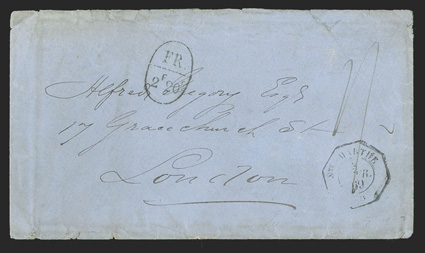 FR.
2F20c
Alfred Gregory Esqr
17 Gracechurch St
London
STE MARTHE